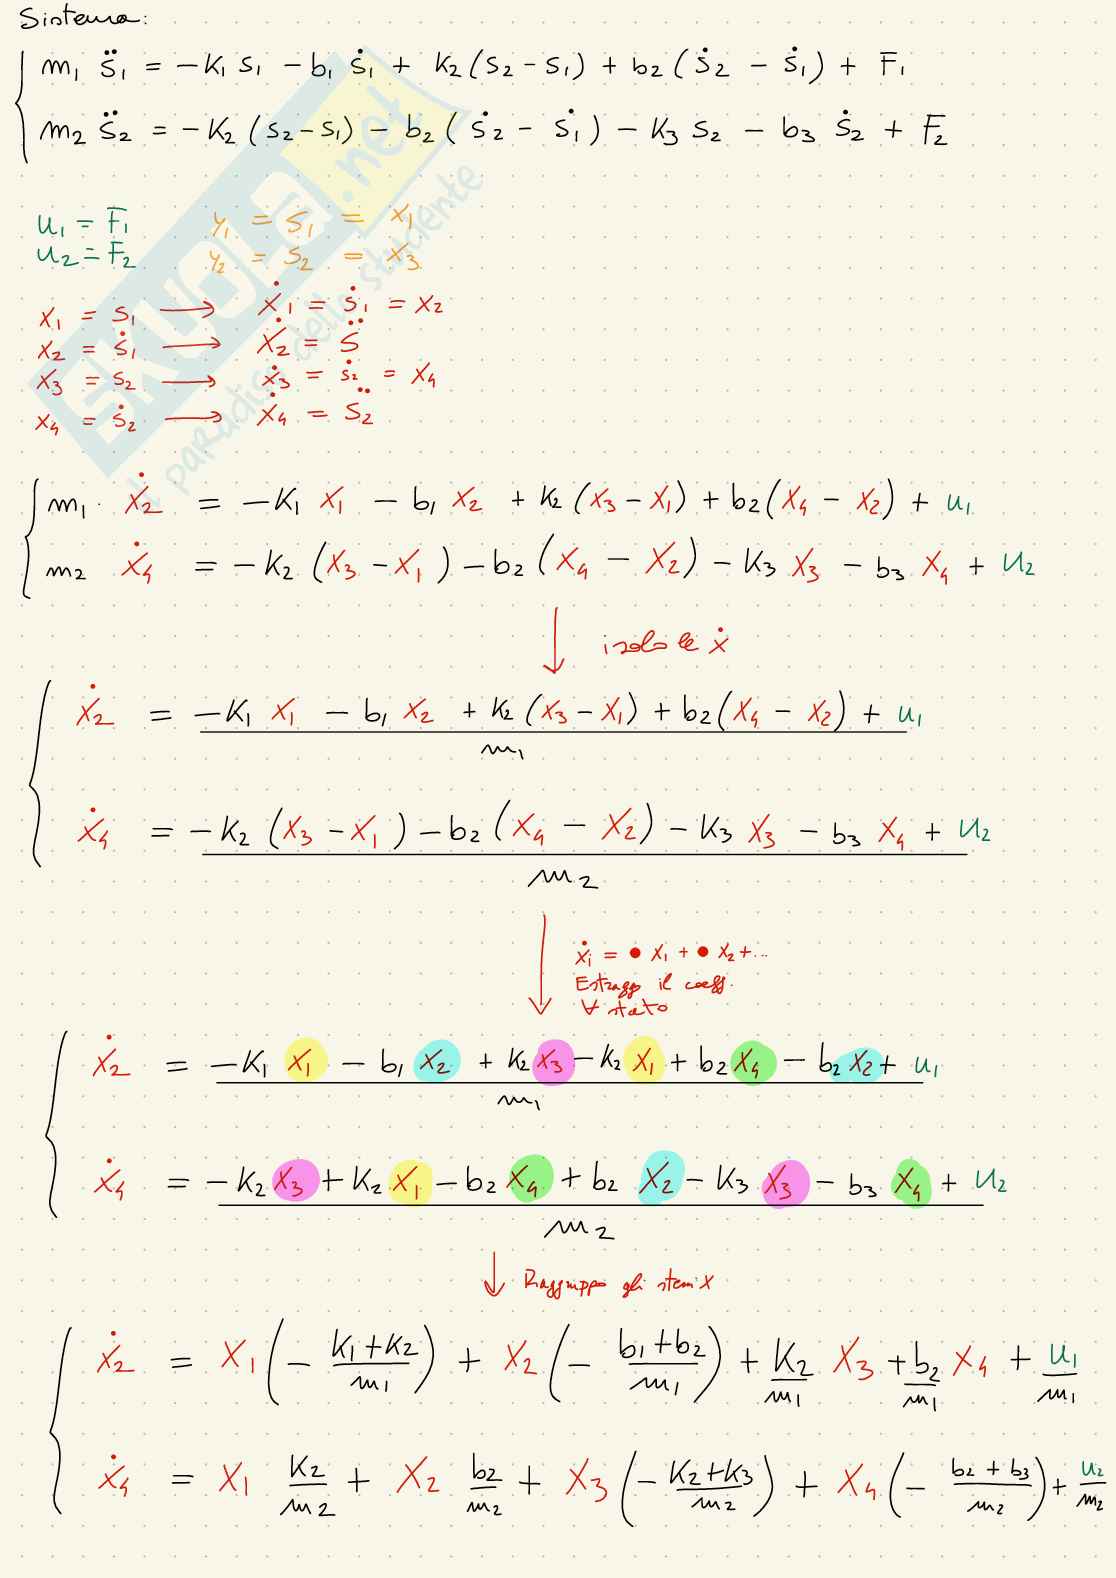 Sistema:
m₁ s̈₁ = -k₁ s₁ - b₁ ṡ₁ + k₂(s₂-s₁) + b₂(ṡ₂ - ṡ₁) + F₁
m₂ s̈₂ = -k₂(s₂-s₁) - b₂(ṡ₂ - ṡ₁) - k₃ s₂ - b₃ ṡ₂ + F₂
u₁ = F₁ y₁ = s₁ = x₁
u₂ = F₂ y₂ = s₂ = x₃
x₁ = s₁ → ẋ₁ = ṡ₁ = x₂
x₂ = ṡ₁ → ẋ₂ = s̈
x₃ = s₂ → ẋ₃ = ṡ₂ = x₄
x₄ = ṡ₂ → ẋ₄ = s̈₂
m₁ · ẋ₂ = -k₁ x₁ - b₁ x₂ + k₂(x₃ - x₁) + b₂(x₄ - x₂) + u₁
m₂ ẋ₄ = -k₂(x₃ - x₁) - b₂(x₄ - x₂) - k₃ x₃ - b₃ x₄ + u₂
↓ isolo le ẋ
ẋ₂ = -k₁ x₁ - b₁ x₂ + k₂(x₃ - x₁) + b₂(x₄ - x₂) + u₁
m₁
ẋ₄ = -k₂(x₃ - x₁) - b₂(x₄ - x₂) - k₃ x₃ - b₃ x₄ + u₂
m₂
↓ ẋᵢ = ● x₁ + ● x₂ + ...
Estraggo il coeff.
∀ stato
ẋ₂ = -k₁ x₁ - b₁ x₂ + k₂ x₃ - k₂ x₁ + b₂ x₄ - b₂ x₂ + u₁
m₁
ẋ₄ = -k₂ x₃ + k₂ x₁ - b₂ x₄ + b₂ x₂ - k₃ x₃ - b₃ x₄ + u₂
m₂
↓ Raggruppo gli stessi x
ẋ₂ = x₁(- (k₁+k₂)/m₁) + x₂(- (b₁+b₂)/m₁) + k₂/m₁ x₃ + b₂/m₁ x₄ + u₁/m₁
ẋ₄ = x₁ k₂/m₂ + x₂ b₂/m₂ + x₃(- (k₂+k₃)/m₂) + x₄(- (b₂+b₃)/m₂) + u₂/m₂
SKUOLA.net
il paradiso dello studente